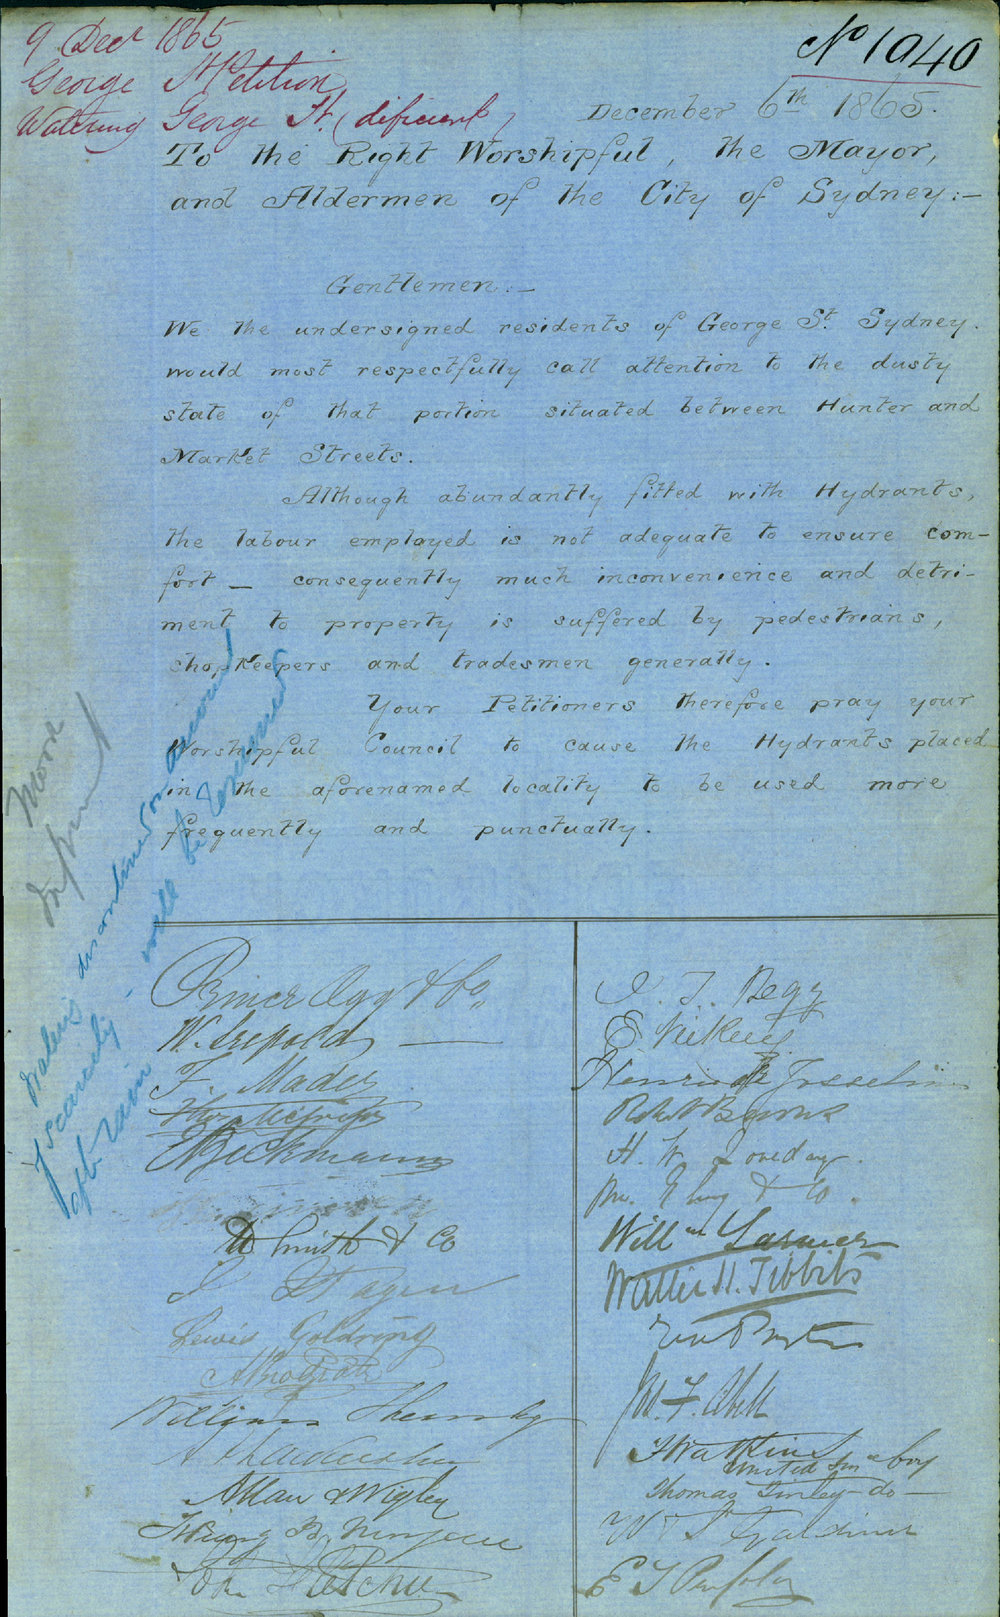 9 Decr 1865
George St Petition
Watering George St. (deficient)
No 1040
December 6th 1865.
To the Right Worshipful, the Mayor,
and Aldermen of the City of Sydney:—
Gentlemen:—
We the undersigned residents of George St. Sydney.
would most respectfully call attention to the dusty
state of that portion situated between Hunter and
Market Streets.
Although abundantly fitted with Hydrants,
the labour employed is not adequate to ensure com-
fort — consequently much inconvenience and detri-
ment to property is suffered by pedestrians,
shopkeepers and tradesmen generally.
Your Petitioners therefore pray your
Worshipful Council to cause the Hydrants placed
in the aforenamed locality to be used more
frequently and punctually.
discontinued on account
of scarcity
after rain - will be
& Co.
W.
F. Mader
Beckmann
Smith & Co
Lewis Goldring
William
Allan & Wigley
John Fletcher
Begg
E Vickery
Henri
Robt
H. W. Loveday.
& Co.
Willm
Walter H. Tibbits
Jno. F. Abell
J Watkins
United
Thomas Finley — do —
W S Gardiner
E T Penfold